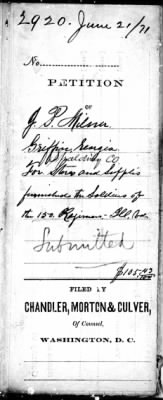 2920. June 21/71
No.
PETITION
OF
J. P. Milner
Griffin Georgia
Spalding Co
For Stores and Supplies
furnished the Soldiers of
the 150 Regiment Ill. Vol
Submitted
FILED BY
CHANDLER, MORTON & CULVER,
Of Counsel,
WASHINGTON, D. C.